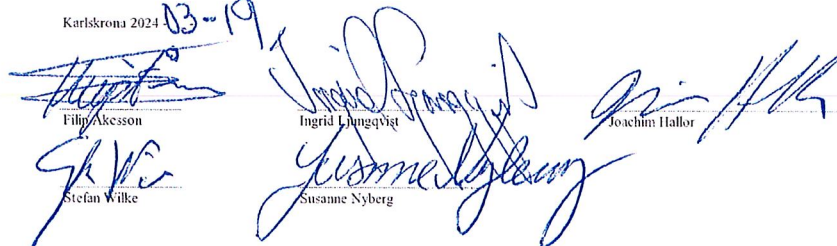 Karlskrona 2024-03-19
Filip Åkesson
Ingrid Ljungqvist
Joachim Hallor
Stefan Wilke
Susanne Nyberg